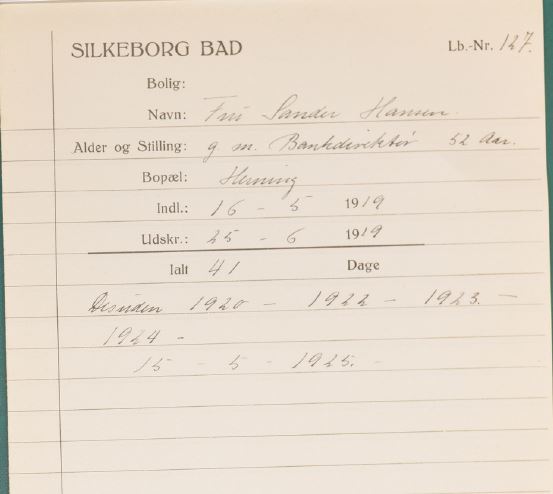 SILKEBORG BAD Lb.-Nr. 127.
Bolig:
Navn: Fru Sander Hansen.
Alder og Stilling: g m. Bankdirektør 52 Aar.
Bopæl: Herning
Indl.: 16 - 5 1919
Udskr.: 25 - 6 1919
Ialt 41 Dage
Desuden 1920 - 1922 - 1923. -
1924 -
15 - 5 - 1925. -